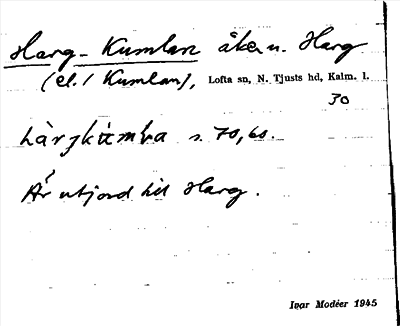 Harg-Kumlan åker u. Harg
(el. / Kumlan), Lofta sn, N. Tjusts hd, Kalm. l.
30
s. 70,60.
Är utjord till Harg.
Ivar Modéer 1945